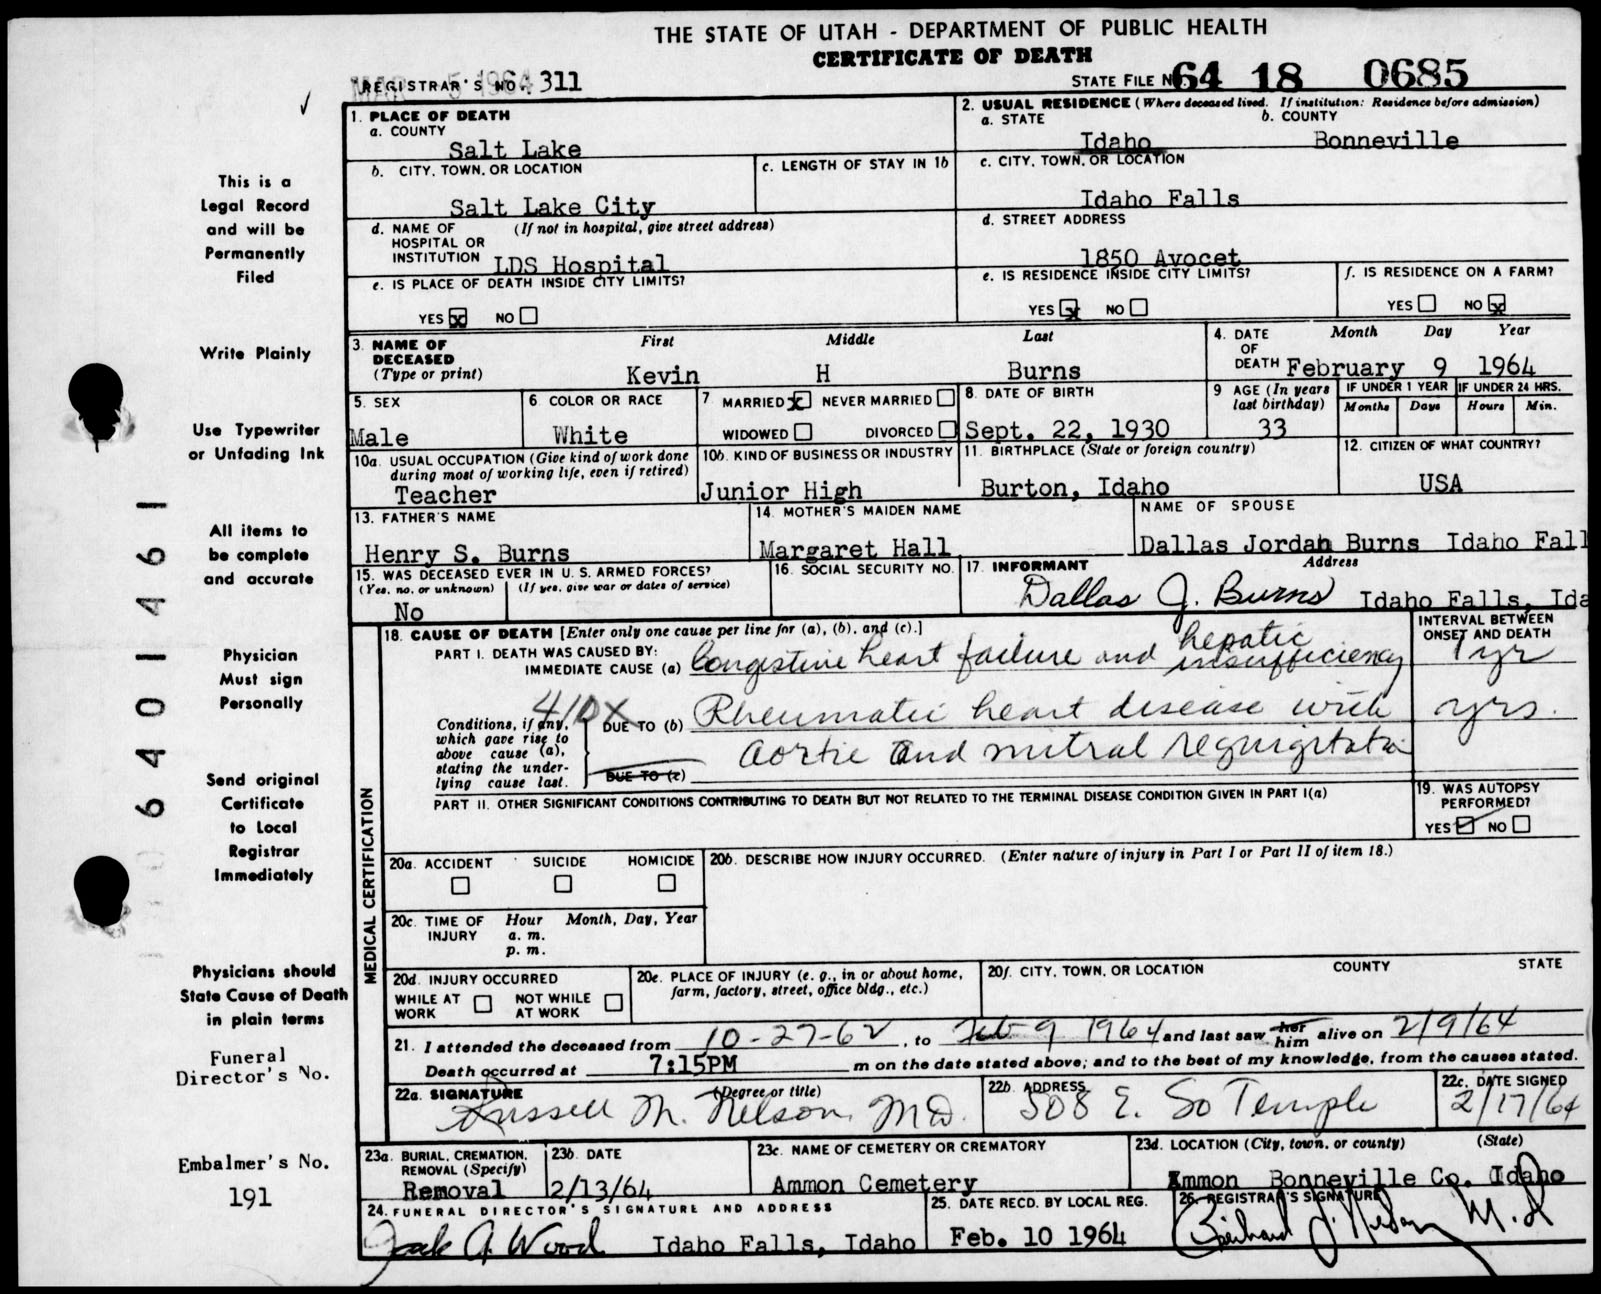 THE STATE OF UTAH - DEPARTMENT OF PUBLIC HEALTH
CERTIFICATE OF DEATH
MAR 5 1964
REGISTRAR'S NO. 311
STATE FILE NO. 64 18 0685
1. PLACE OF DEATH
a. COUNTY
Salt Lake
2. USUAL RESIDENCE (Where deceased lived. If institution: Residence before admission)
a. STATE b. COUNTY
Idaho Bonneville
b. CITY, TOWN, OR LOCATION
Salt Lake City
c. LENGTH OF STAY IN 1b
c. CITY, TOWN, OR LOCATION
Idaho Falls
d. NAME OF (If not in hospital, give street address)
HOSPITAL OR
INSTITUTION LDS Hospital
d. STREET ADDRESS
1850 Avocet
e. IS PLACE OF DEATH INSIDE CITY LIMITS?
YES x NO
e. IS RESIDENCE INSIDE CITY LIMITS?
YES x NO
f. IS RESIDENCE ON A FARM?
YES NO x
3. NAME OF First Middle Last
DECEASED
(Type or print) Kevin H Burns
4. DATE Month Day Year
OF
DEATH February 9 1964
5. SEX
Male
6. COLOR OR RACE
White
7. MARRIED x NEVER MARRIED
WIDOWED DIVORCED
8. DATE OF BIRTH
Sept. 22, 1930
9 AGE (In years
last birthday)
33
IF UNDER 1 YEAR IF UNDER 24 HRS.
Months Days Hours Min.
10a. USUAL OCCUPATION (Give kind of work done
during most of working life, even if retired)
Teacher
10b. KIND OF BUSINESS OR INDUSTRY
Junior High
11. BIRTHPLACE (State or foreign country)
Burton, Idaho
12. CITIZEN OF WHAT COUNTRY?
USA
13. FATHER'S NAME
Henry S. Burns
14. MOTHER'S MAIDEN NAME
Margaret Hall
NAME OF SPOUSE
Dallas Jordan Burns Idaho Fall
15. WAS DECEASED EVER IN U. S. ARMED FORCES?
(Yes, no, or unknown) (If yes, give war or dates of service)
No
16. SOCIAL SECURITY NO.
17. INFORMANT Address
Dallas J. Burns Idaho Falls, Ida
MEDICAL CERTIFICATION
18. CAUSE OF DEATH [Enter only one cause per line for (a), (b), and (c).]
INTERVAL BETWEEN
ONSET AND DEATH
PART I. DEATH WAS CAUSED BY:
IMMEDIATE CAUSE (a) Congestive heart failure and hepatic insufficiency 1 yr
410X
Conditions, if any,
which gave rise to
above cause (a),
stating the under-
lying cause last.
DUE TO (b) Rheumatic heart disease with yrs.
aortic and mitral regurgitation
DUE TO (c)
PART II. OTHER SIGNIFICANT CONDITIONS CONTRIBUTING TO DEATH BUT NOT RELATED TO THE TERMINAL DISEASE CONDITION GIVEN IN PART I(a)
19. WAS AUTOPSY
PERFORMED?
YES NO
20a. ACCIDENT SUICIDE HOMICIDE
20b. DESCRIBE HOW INJURY OCCURRED. (Enter nature of injury in Part I or Part II of item 18.)
20c. TIME OF Hour Month, Day, Year
INJURY a. m.
p. m.
20d. INJURY OCCURRED
WHILE AT NOT WHILE
WORK AT WORK
20e. PLACE OF INJURY (e. g., in or about home,
farm, factory, street, office bldg., etc.)
20f. CITY, TOWN, OR LOCATION COUNTY STATE
21. I attended the deceased from 10-27-62, to Feb 9 1964 and last saw her him alive on 2/9/64
Death occurred at 7:15PM m on the date stated above; and to the best of my knowledge, from the causes stated.
22a. SIGNATURE (Degree or title)
Russell M. Nelson, MD.
22b. ADDRESS
508 E. So Temple
22c. DATE SIGNED
2/17/64
23a. BURIAL, CREMATION,
REMOVAL (Specify)
Removal
23b. DATE
2/13/64
23c. NAME OF CEMETERY OR CREMATORY
Ammon Cemetery
23d. LOCATION (City, town, or county) (State)
Ammon Bonneville Co. Idaho
24. FUNERAL DIRECTOR'S SIGNATURE AND ADDRESS
Jack A. Wood Idaho Falls, Idaho
25. DATE RECD. BY LOCAL REG.
Feb. 10 1964
26. REGISTRAR'S SIGNATURE
M.D
This is a
Legal Record
and will be
Permanently
Filed
Write Plainly
Use Typewriter
or Unfading Ink
All items to
be complete
and accurate
Physician
Must sign
Personally
Send original
Certificate
to Local
Registrar
Immediately
Physicians should
State Cause of Death
in plain terms
Funeral
Director's No.
Embalmer's No.
191
6401461